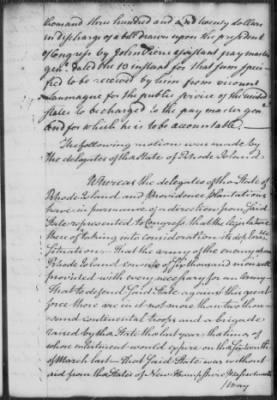 thousand three hundred and and twenty dollars
in discharge of a bill drawn upon the president
of Congress by John Pierce assistant pay master
genl. dated the 13 instant for that sum speci-
fied to be received by him from viscount
Laumagne for the public service of the united
states to be charged to the pay master genl.
and for which he is to be accountable.
The following motion was made by
the delegates of the State of Rhode Island.
Whereas the delegates of the State of
Rhode Island and Providence plantations
have in pursuance of a direction from said
State represented to Congress that the legislature
there of taking into consideration its
situation. That the army of the enemy on
Rhode Island consists of six thousand men well
provided with every necessary for an army
That to defend said State against this great
force there are not more than two thou-
sand continental troops and a brigade
raised by that State the last year, the time of
whose enlistment would expire on the
of March last. That said State was without
aid from the States of New Hampshire Massachusetts